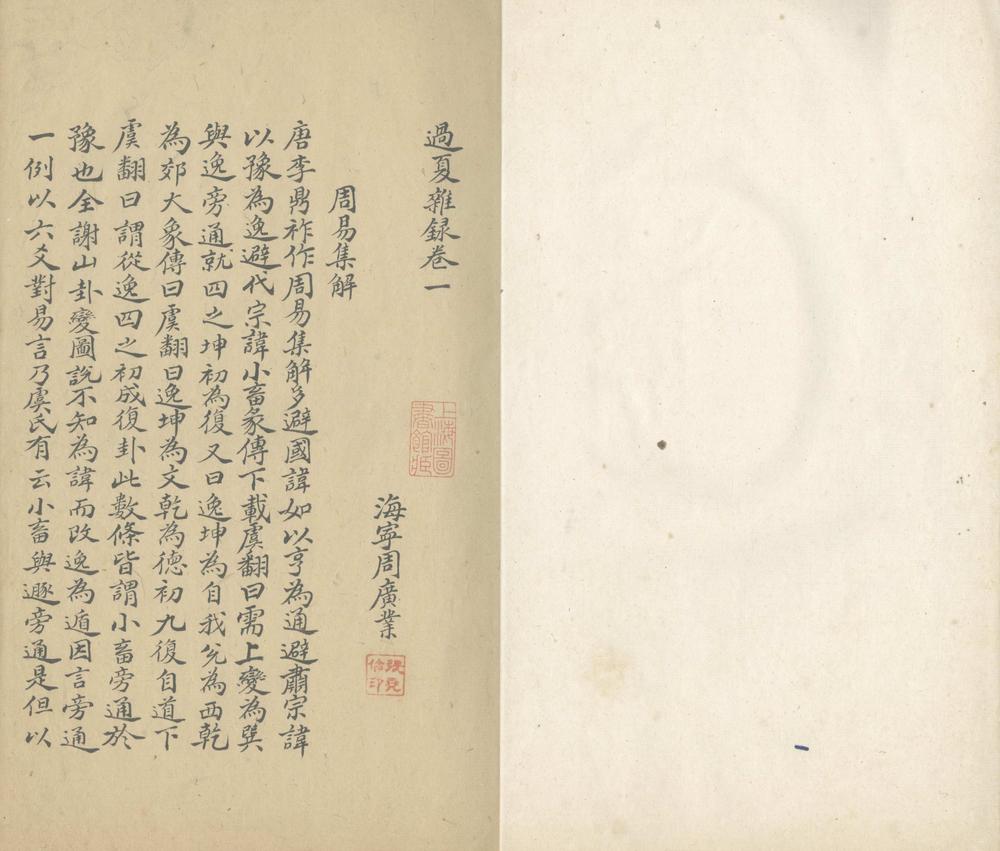 過夏雜録卷一
海寧周廣業
周易集解
唐李鼎祚作周易集解多避國諱如以亨為通避肅宗諱
以豫為逸避代宗諱小畜彖傳下載虞翻曰需上變為巽
與逸旁通就四之坤初為復又曰逸坤為自我兊為西乾
為郊大象傳曰虞翻曰逸坤為文乾為德初九復自道下
虞翻曰謂從逸四之初成復卦此數條皆謂小畜旁通於
豫也全謝山卦變圖說不知為諱而改逸為遁因言旁通
一例以六爻對易言乃虞氏有云小畜與遯旁通是但以
上海圖書館藏